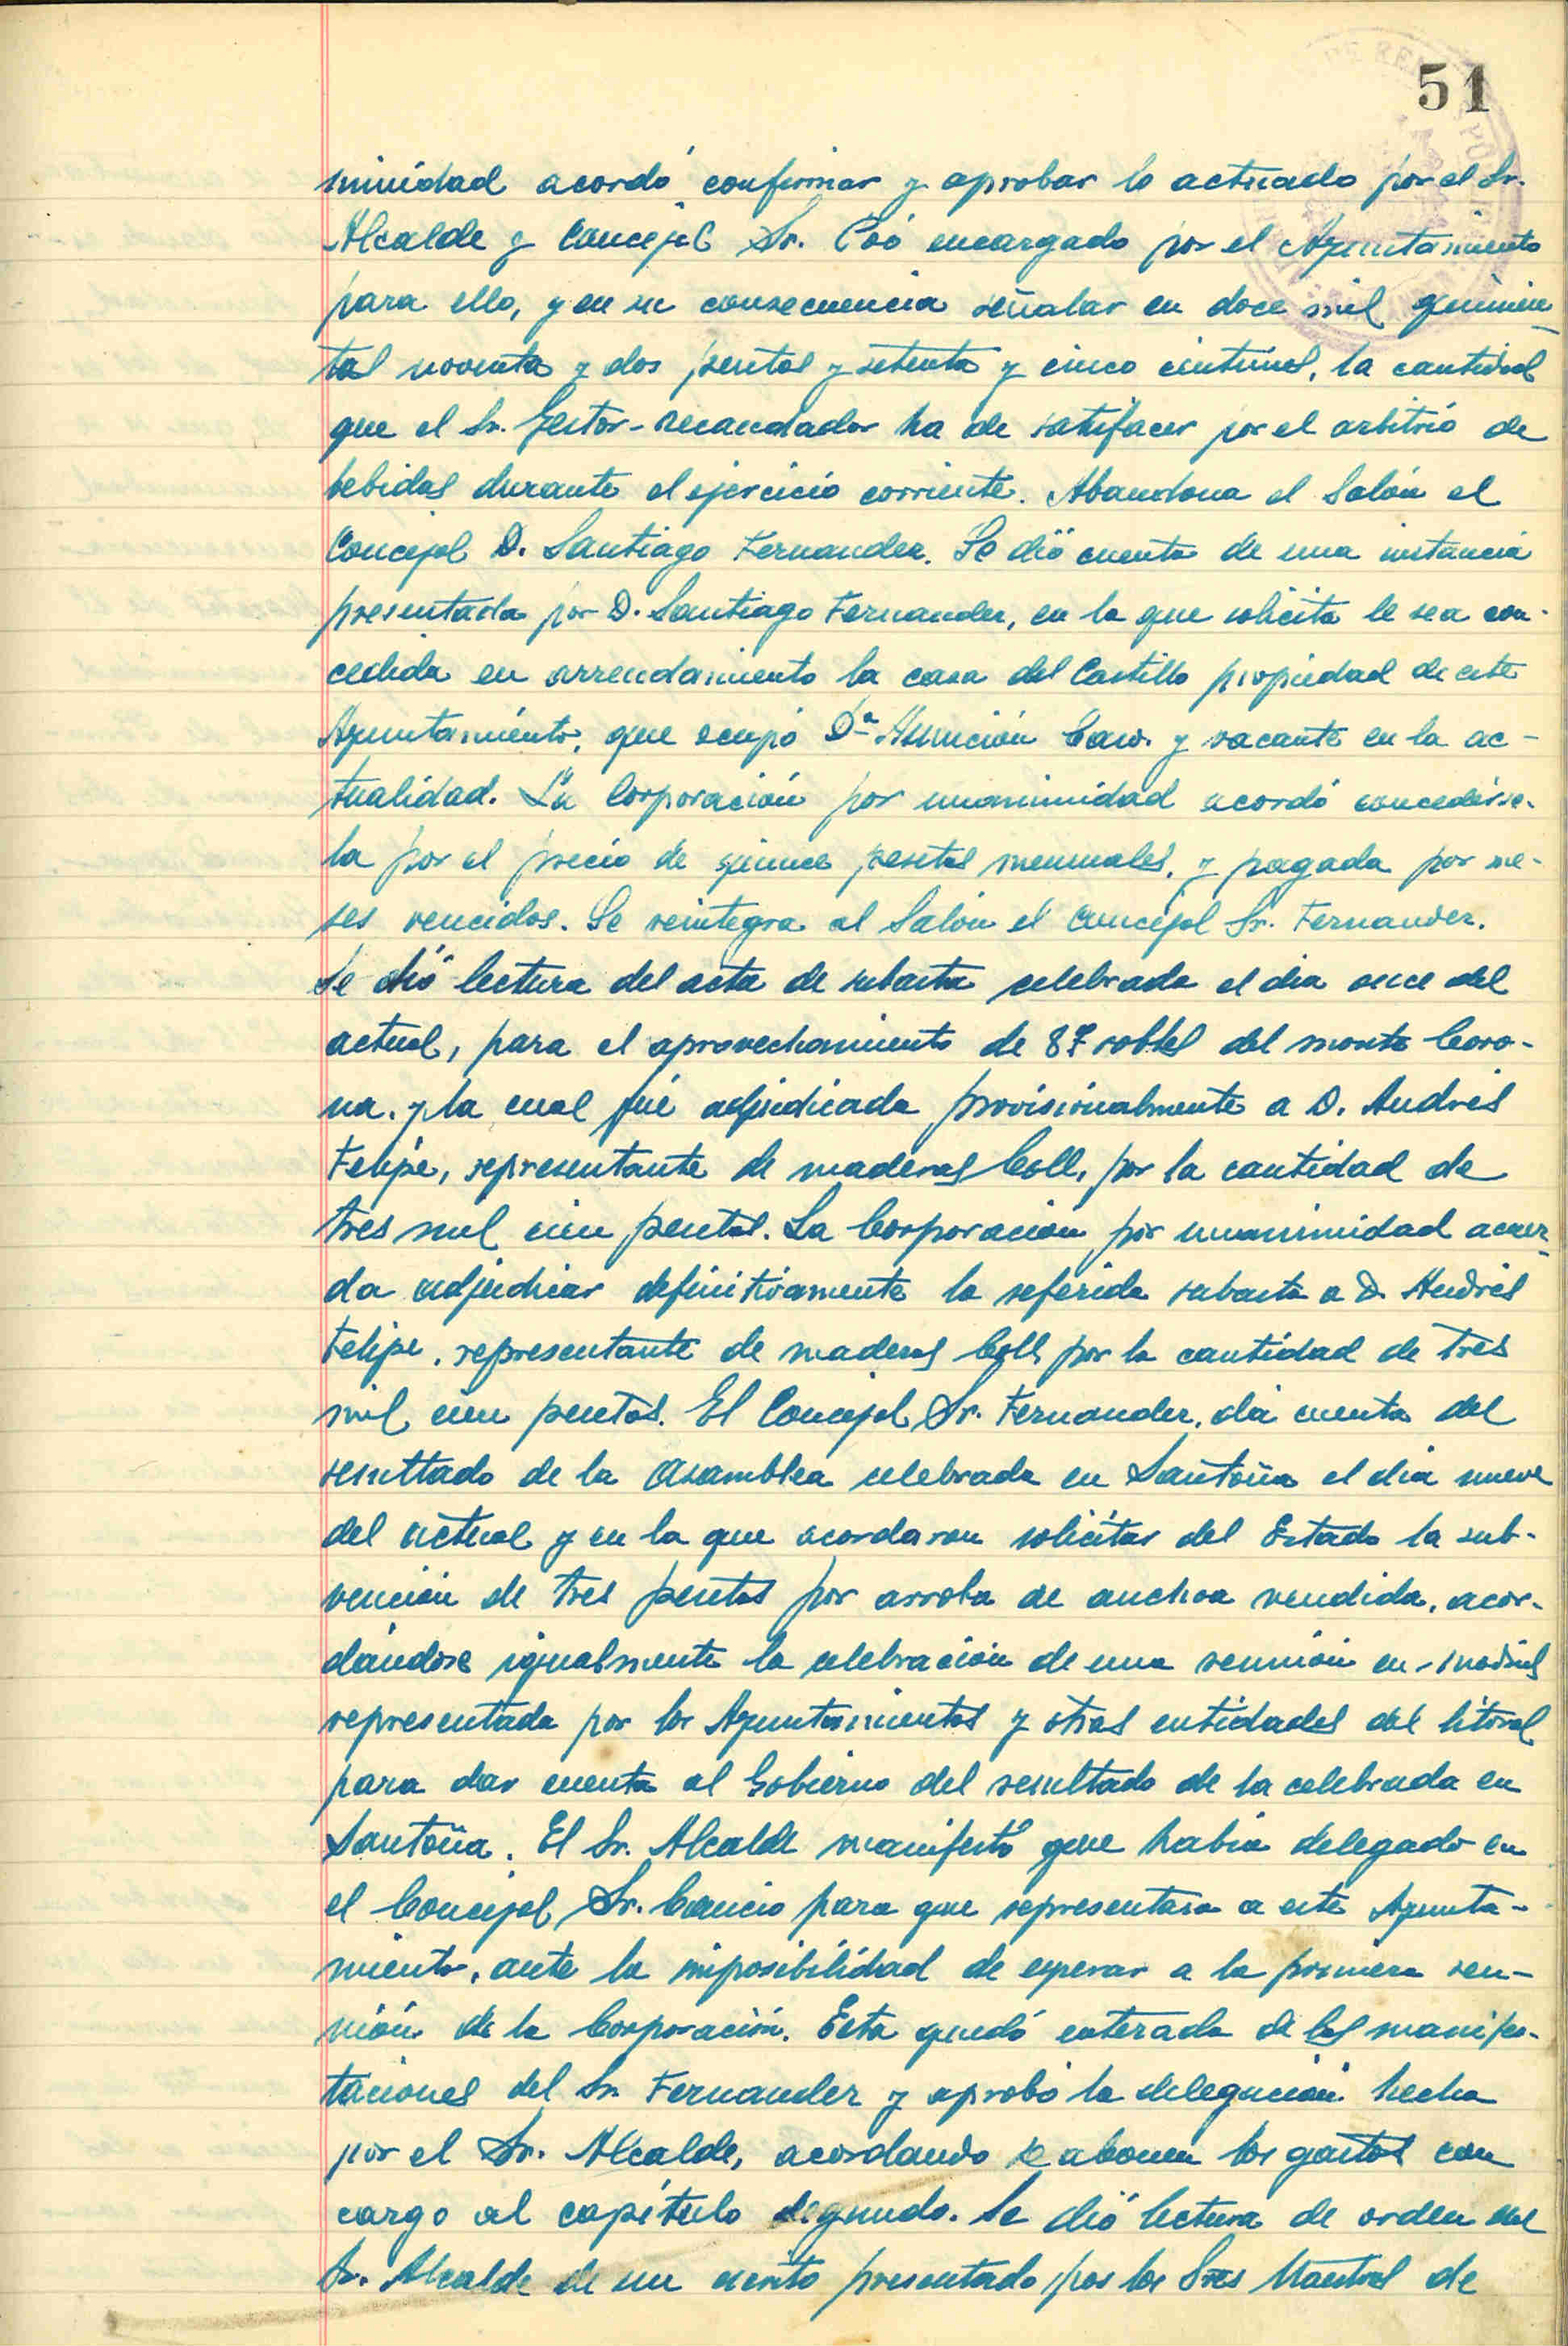 51
nimidad acordó confirmar y aprobar lo actuado por el Sr.
Alcalde y Concejal Sr. Coó encargado por el Ayuntamiento
para ello, y en su consecuencia señalar en doce mil quinien-
tas noventa y dos pesetas y setenta y cinco centimos, la cantidad
que el Sr. Gestor-recaudador ha de satisfacer por el arbitrio de
bebidas durante el ejercicio corriente. Abandona el Salón el
Concejal D. Santiago Fernandez. Se dió cuenta de una instancia
presentada por D. Santiago Fernandez, en la que solicita le sea con-
cedida en arrendamiento la casa del Castillo propiedad de este
Ayuntamiento, que ocupó Dª Asunción y vacante en la ac-
tualidad. La Corporación por unanimidad acordó concedérse-
la por el precio de quince pesetas mensuales, y pagada por me-
ses vencidos. Se reintegra al Salón el Concejal Sr. Fernandez.
Se dió lectura del acta de subasta celebrada el dia once del
actual, para el aprovechamiento de 87 robles del monte Coro-
na, y la cual fué adjudicada provisionalmente a D. Andrés
Felipe, representante de maderas Coll, por la cantidad de
tres mil cien pesetas. La Corporación por unanimidad acuer-
da adjudicar definitivamente la referida subasta a D. Andrés
Felipe, representante de maderas Coll por la cantidad de tres
mil cien pesetas. El Concejal Sr. Fernandez, da cuenta del
resultado de la Asamblea celebrada en Santoña el dia nueve
del actual y en la que acordaron solicitar del Estado la sub-
vención de tres pesetas por arroba de anchoa vendida, acor-
dándose igualmente la celebración de una reunión en Madrid
representada por los Ayuntamientos y otras entidades del litoral
para dar cuenta al Gobierno del resultado de la celebrada en
Santoña. El Sr. Alcalde manifestó que habia delegado en
el Concejal Sr. Cancio para que representara a este Ayunta-
miento, ante la imposibilidad de esperar a la primera reu-
nión de la Corporación. Esta quedó enterada de las manifes-
taciones del Sr. Fernandez y aprobó la delegación hecha
por el Sr. Alcalde, acordando se abonen los gastos con
cargo al capítulo segundo. Se dió lectura de orden del
Sr. Alcalde de un escrito presentado por los Sres Maestros de